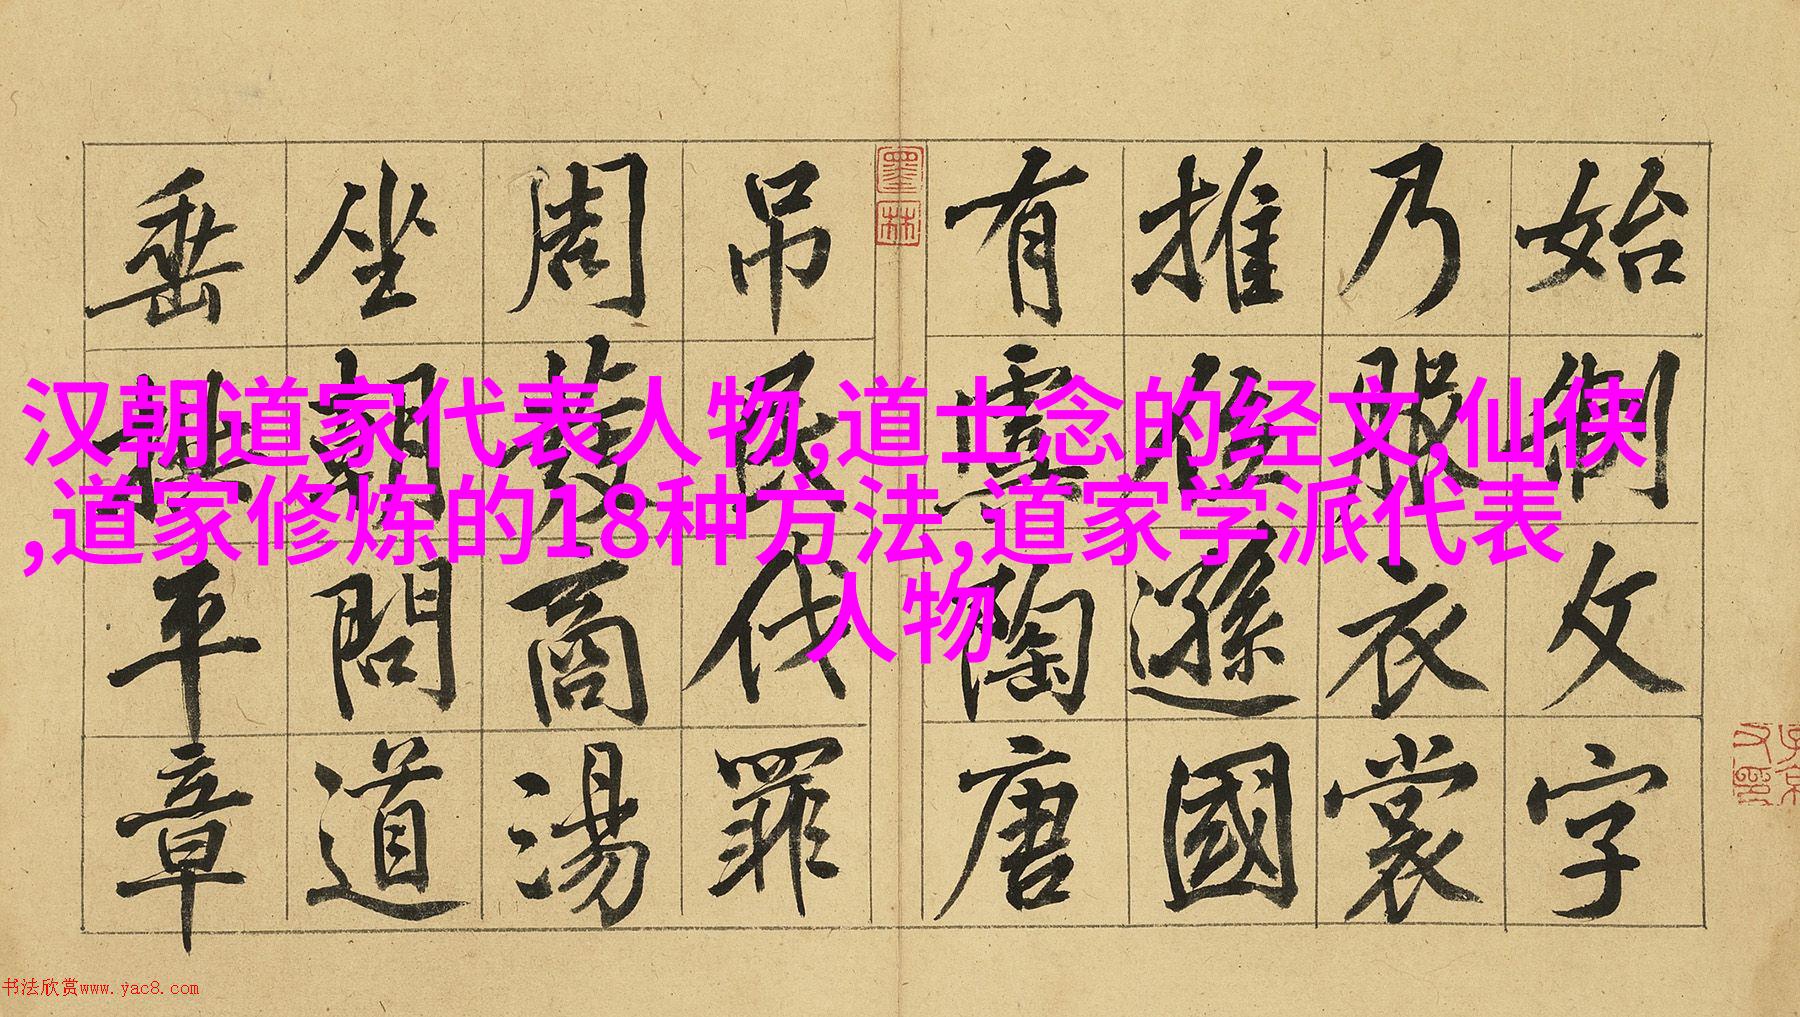 汉朝道家代表人物,道士念的经文,仙侠
,道家修炼的18种方法,道家学派代表
人物
始制文字
乃服衣裳
推位遜國
有虞陶唐
吊民伐罪
周發商湯
坐朝問道
垂拱平章
墨林
书法欣赏www.yac8.com